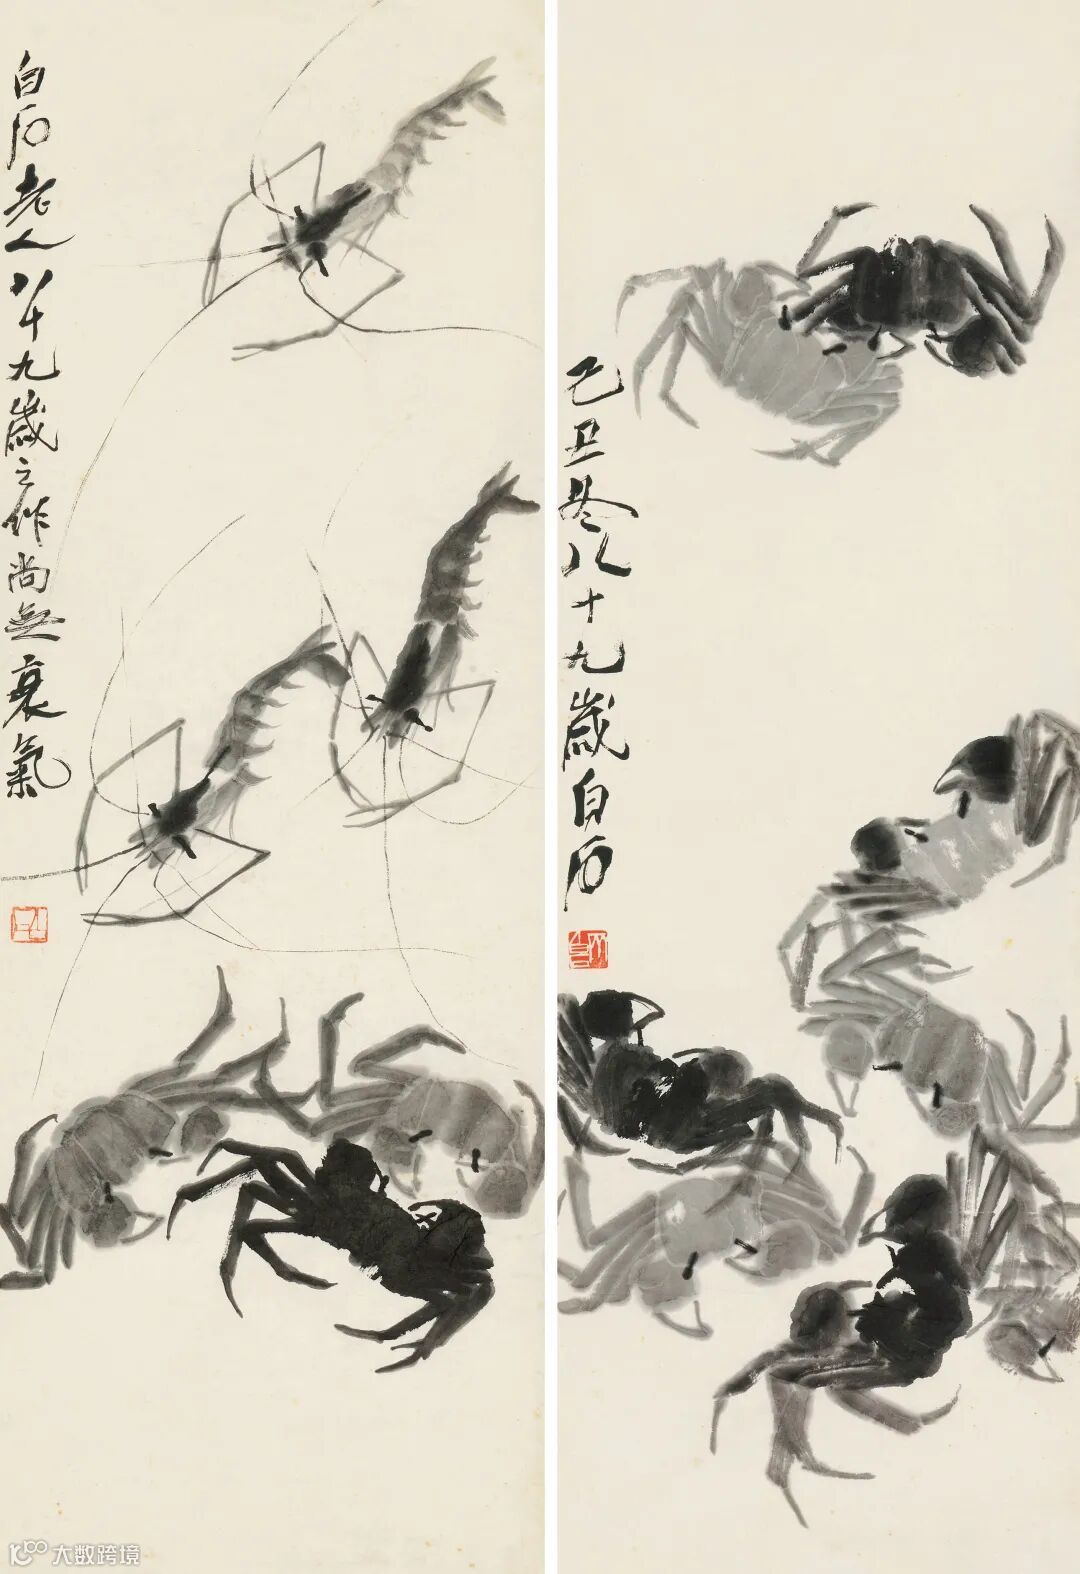 白石老人八十九歲之作尚無衰氣
己丑冬八十九歲白石
大数跨境